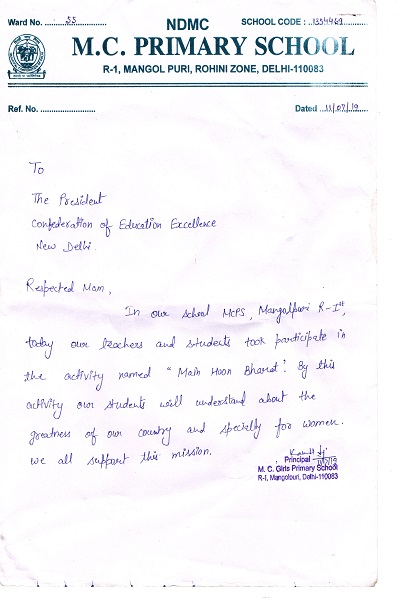 Ward No. 55
NDMC
SCHOOL CODE : 1354469
M.C. PRIMARY SCHOOL
R-1, MANGOL PURI, ROHINI ZONE, DELHI-110083
Ref. No.
Dated 11/07/19
To
The President
Confederation of Education Excellence
New Delhi.
Respected Mam,
In our school MCPS, Mangolpuri R-Ist,
today our teachers and students took participate in
the activity named "Main Hoon Bharat". By this
activity our students will understand about the
greatness of our country and specially for women.
we all support this mission.
Principal
M. C. Girls Primary School
R-I, Mangolpuri, Delhi-110083